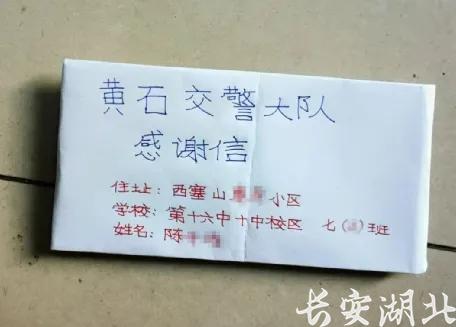 黄石交警大队
感谢信
住址：西塞山小区
学校：第十六中十中校区 七（）班
姓名：陈
长安湖北